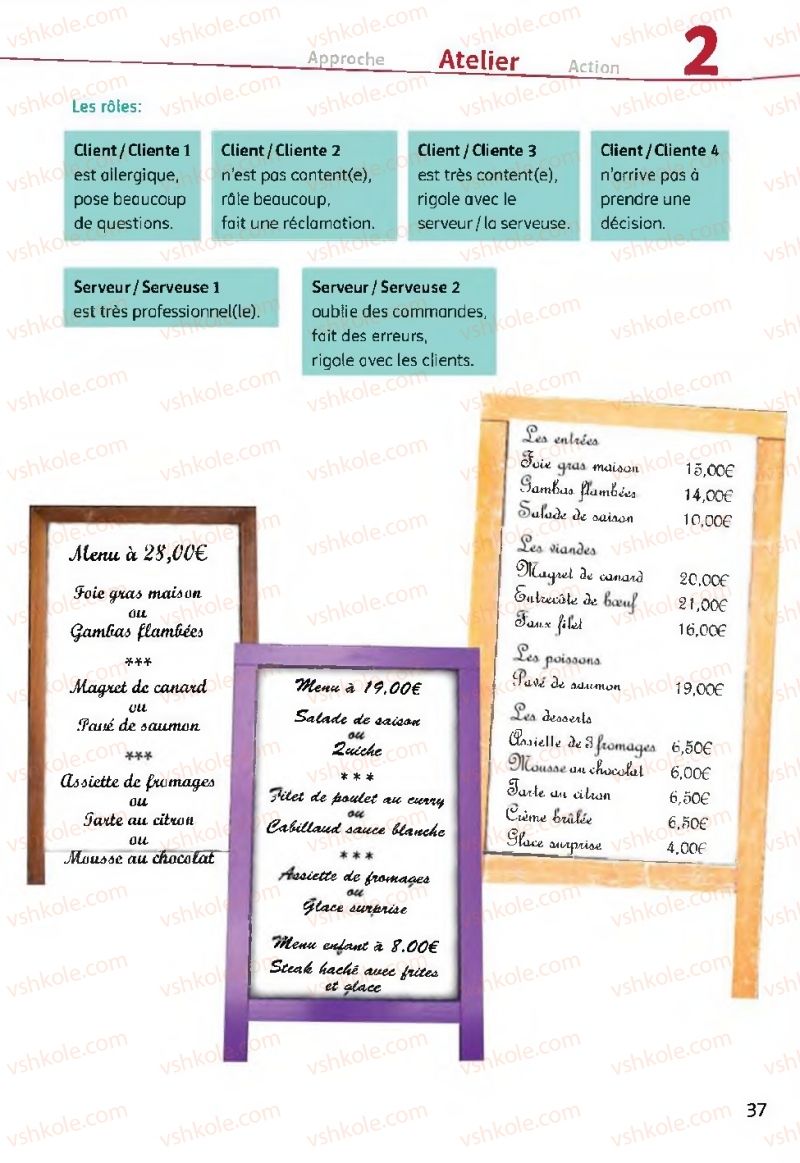 Approche Atelier Action 2
Les rôles:
Client / Cliente 1
est allergique,
pose beaucoup
de questions.
Client / Cliente 2
n'est pas content(e),
râle beaucoup,
fait une réclamation.
Client / Cliente 3
est très content(e),
rigole avec le
serveur / la serveuse.
Client / Cliente 4
n'arrive pas à
prendre une
décision.
Serveur / Serveuse 1
est très professionnel(le).
Serveur / Serveuse 2
oublie des commandes,
fait des erreurs,
rigole avec les clients.
Menu à 28,00€
Foie gras maison
ou
Gambas flambées
***
Magret de canard
ou
Pavé de saumon
***
Assiette de fromages
ou
Tarte au citron
ou
Mousse au chocolat
Menu à 19,00€
Salade de saison
ou
Quiche
***
Filet de poulet au curry
ou
Cabillaud sauce blanche
***
Assiette de fromages
ou
Glace surprise
Menu enfant à 8.00€
Steak haché avec frites
et glace
Les entrées
Foie gras maison 15,00€
Gambas flambées 14,00€
Salade de saison 10,00€
Les viandes
Magret de canard 20,00€
Entrecôte de bœuf 21,00€
Faux filet 16,00€
Les poissons
Pavé de saumon 19,00€
Les desserts
Assielle de 3 fromages 6,50€
Mousse au chocolat 6,00€
Tarte au citron 6,50€
Crème brûlée 6,50€
Glace surprise 4,00€
37
vshkole.com